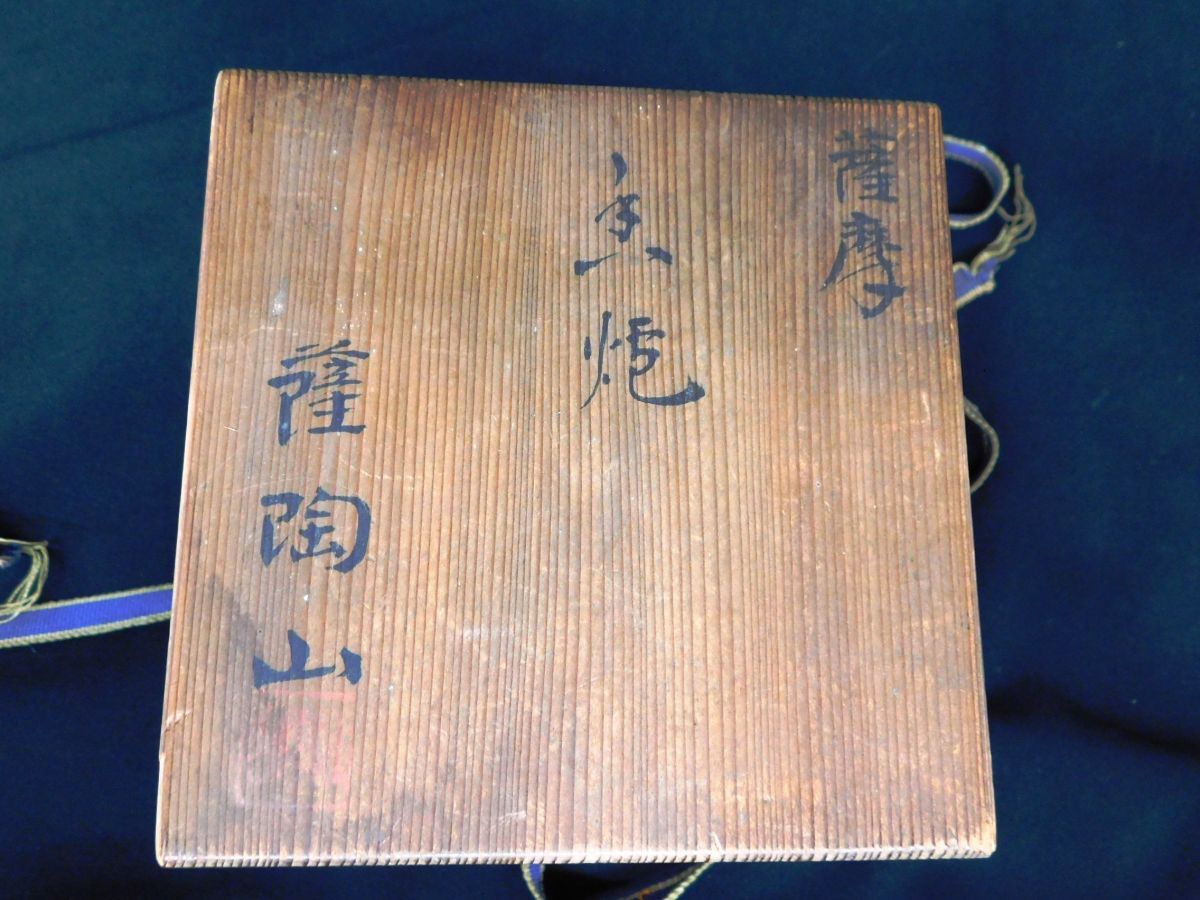 薩摩
香炉
薩陶山